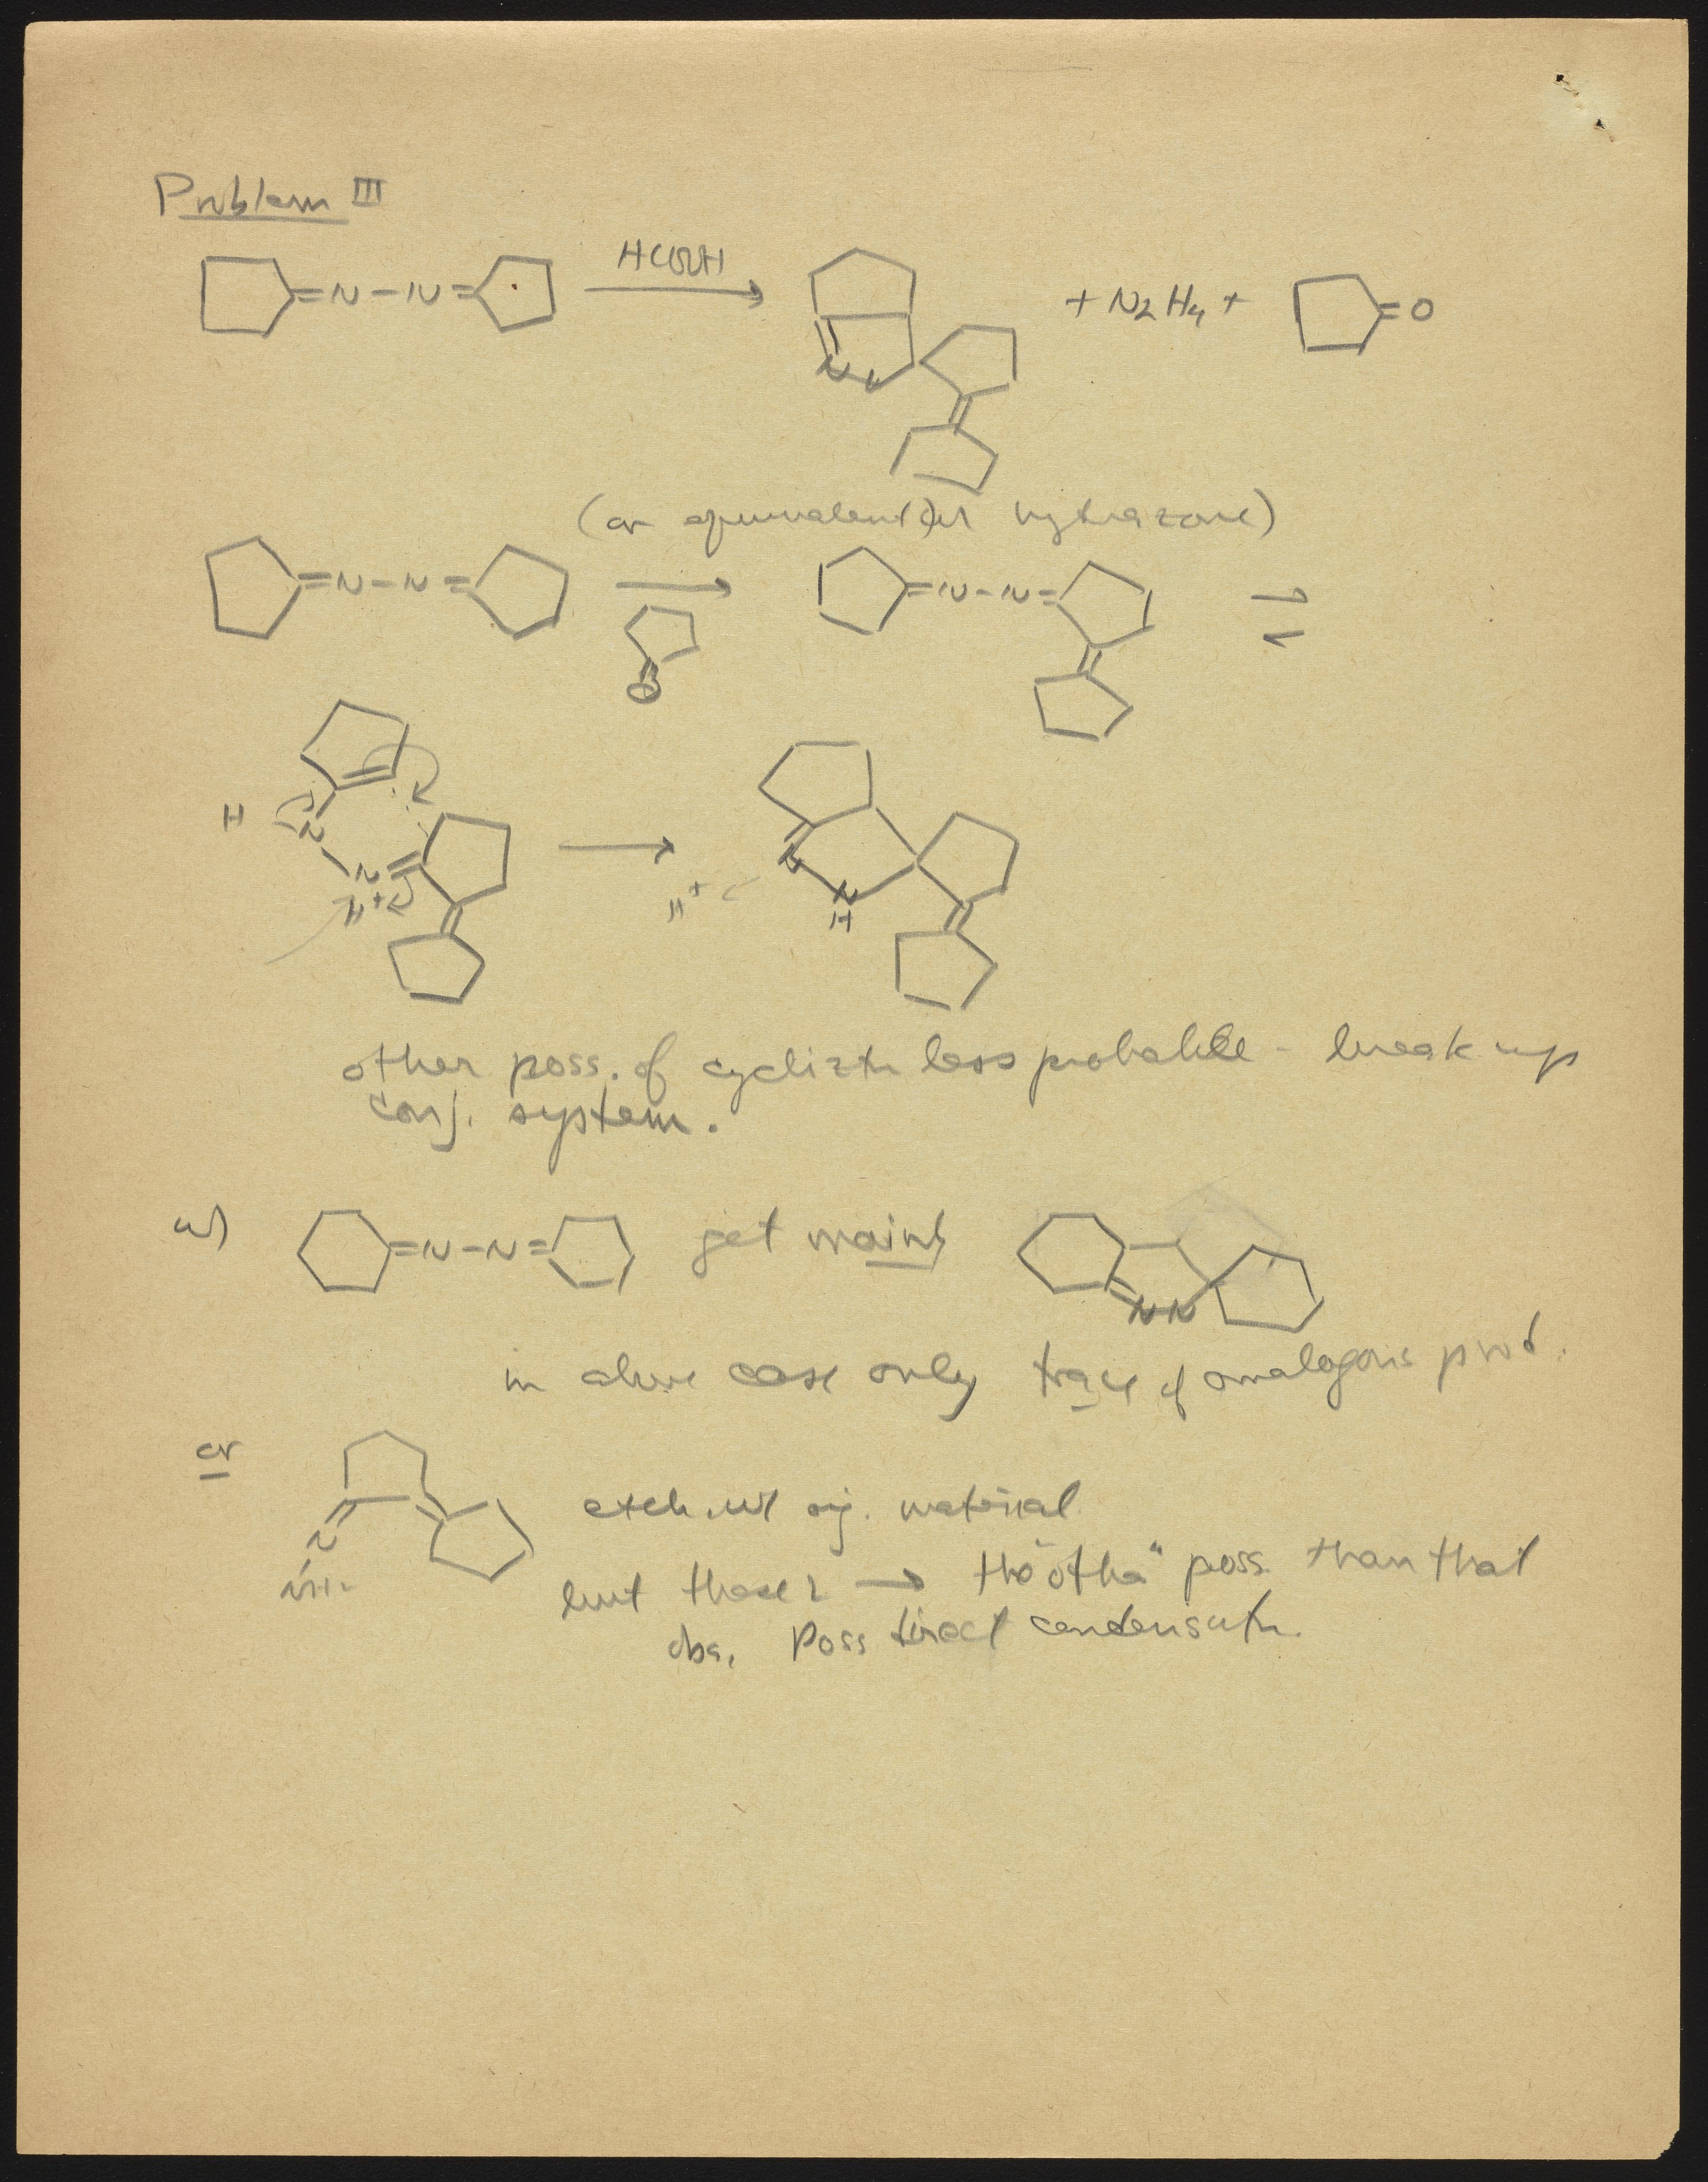 Problem III
HCOOH
=N-N= + N2H4 + =O
N N
(or equivalent hydrazone)
=N-N= =N-N=
O
H N
N N
H+ H+ N
H
other poss. of cycliztn less probable - break up
conj. system.
=N-N= get mainly
N N
in above case only trace of analogous prod.
or
N exch. orig. material
NH2 but these 2 → the "other" poss. than that
obs. Poss direct condensatn.